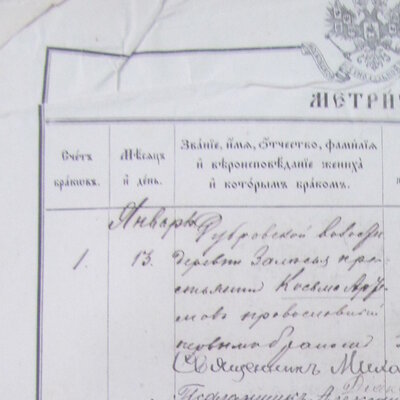 МЕТРИ
Счетъ браковъ.
Мѣсяцъ и день.
Званіе, имя, отчество, фамилія и вѣроисповѣданіе жениха и которымъ бракомъ.
Январь
1. 13. Дубровской волости
деревни
Косьма
православный
первымъ бракомъ
Священникъ Миха
Псаломщикъ